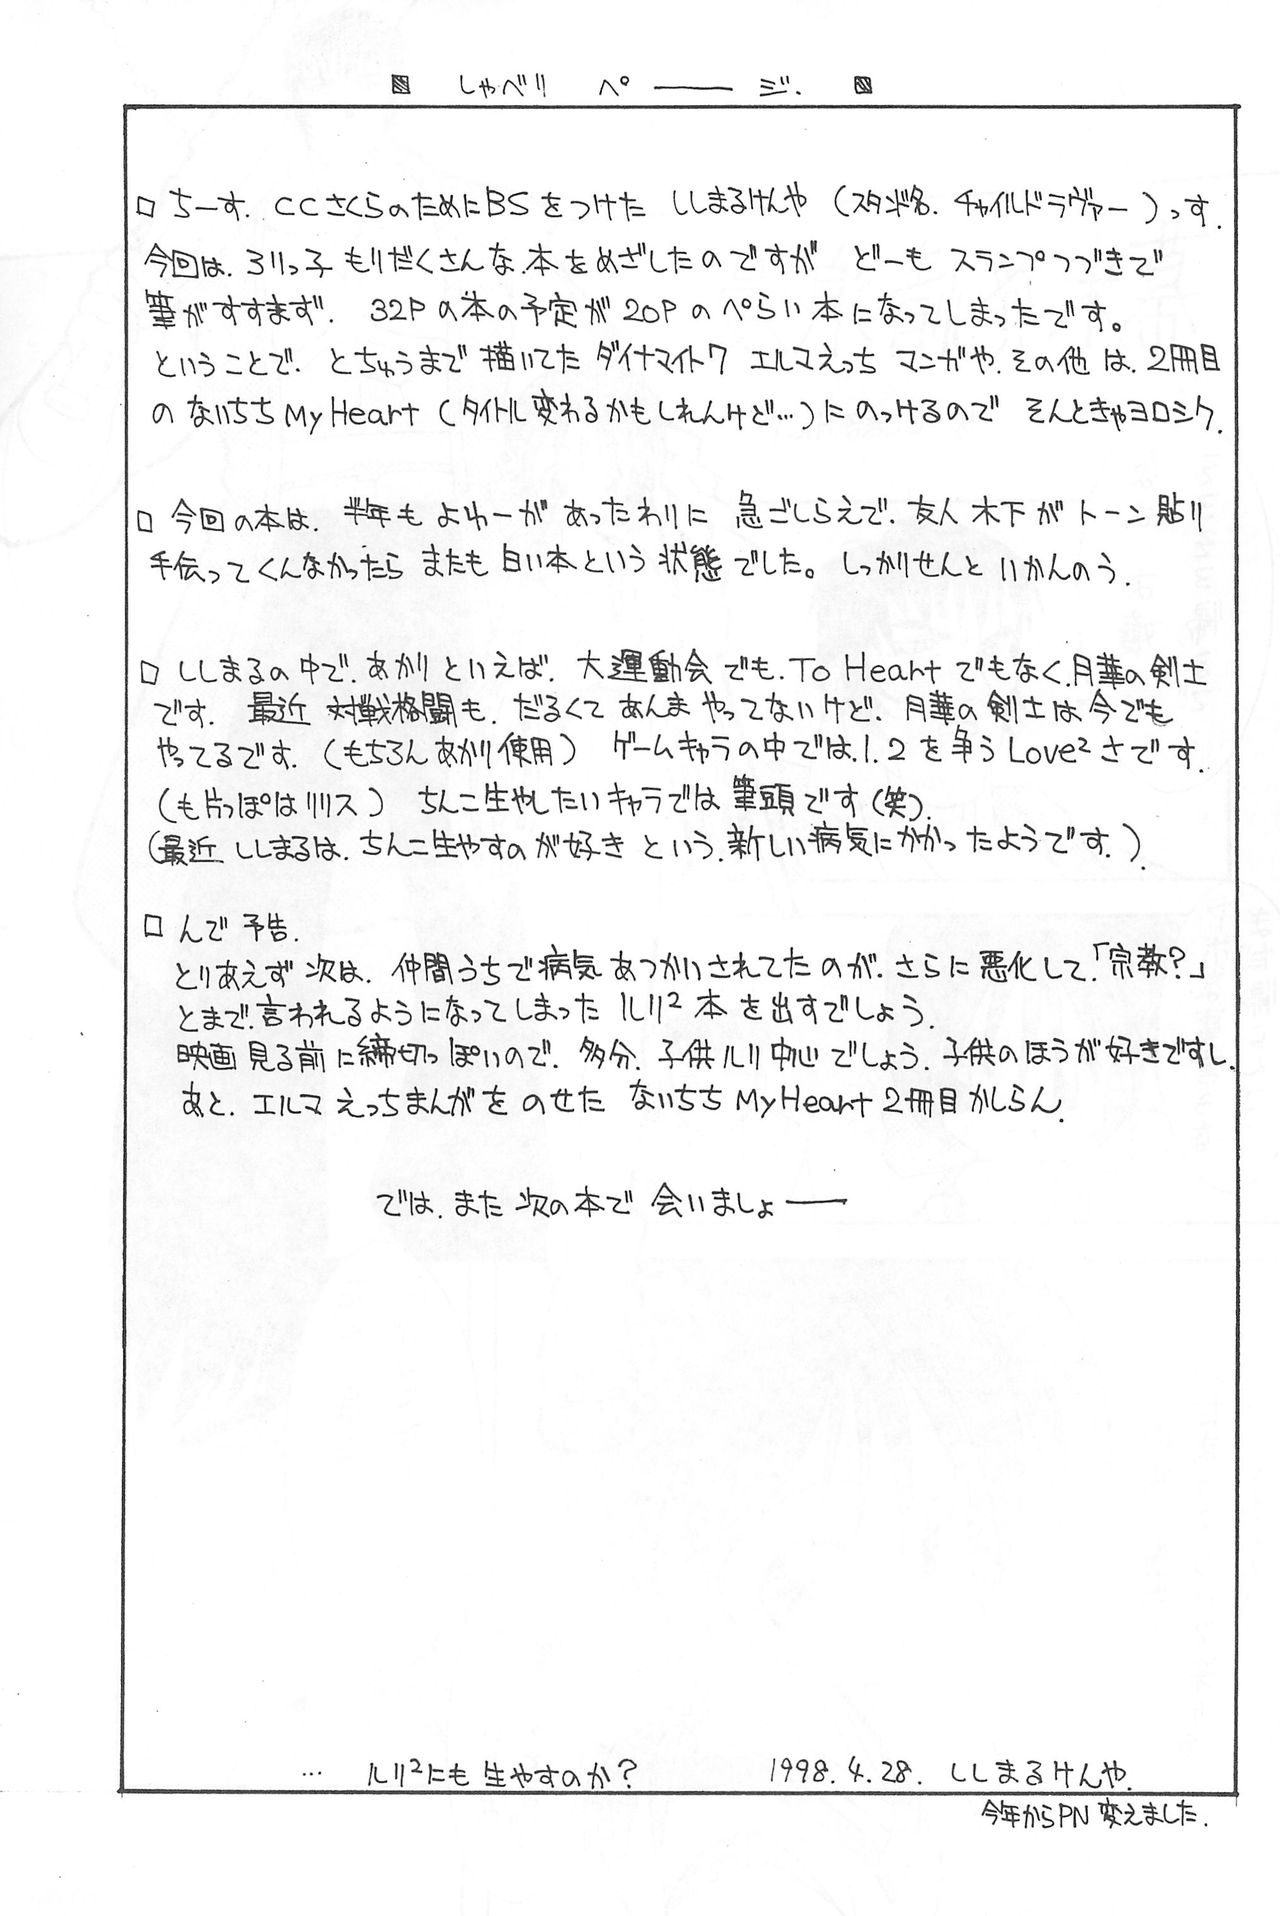 しゃべり ペーージ.
□ ちーす. CCさくらのためにBSをつけた ししまるけんや (スタンド名. チャイルドラヴァー)っす.
今回は. ろりっ子 もりだくさんな 本をめざしたのですが どーも スランプつづきで
筆がすすまず. 32Pの本の予定が20Pのぺらい本になってしまったです。
ということで. とちゅうまで描いてたダイナマイト7 エルマえっち マンガや. その他は. 2冊目
のないちちMy Heart (タイトル変わるかもしれんけど…)にのっけるので そんときゃヨロシク.
□ 今回の本は. 半年もよゆーがあったわりに 急ごしらえで. 友人木下がトーン貼り
手伝ってくんなかったら またも白い本という状態でした。しっかりせんといかんのう.
□ ししまるの中で. あかりといえば. 大運動会でも. To Heartでもなく. 月華の剣士
です. 最近 対戦格闘も. だるくて あんま やってないけど. 月華の剣士は今でも
やってるです. (もちろんあかり使用) ゲームキャラの中では. 1. 2を争うLove²さです.
(も片っぽはリリス) ちんこ生やしたいキャラでは筆頭です(笑).
(最近 ししまるは. ちんこ生やすのが好き という. 新しい病気にかかったようです.)
□ んで 予告.
とりあえず次は. 仲間うちで病気あつかいされてたのが. さらに悪化して.「宗教?」
とまで. 言われるようになってしまった ルリ² 本を出すでしょう.
映画 見る前に締切っぽいので. 多分. 子供ルリ中心でしょう. 子供のほうが好きですし.
あと. エルマ えっちまんがを のせた ないちち My Heart 2冊目かしらん.
では. また次の本で 会いましょーー
… ルリ²にも生やすのか? 1998. 4. 28. ししまるけんや.
今年からPN変えました.